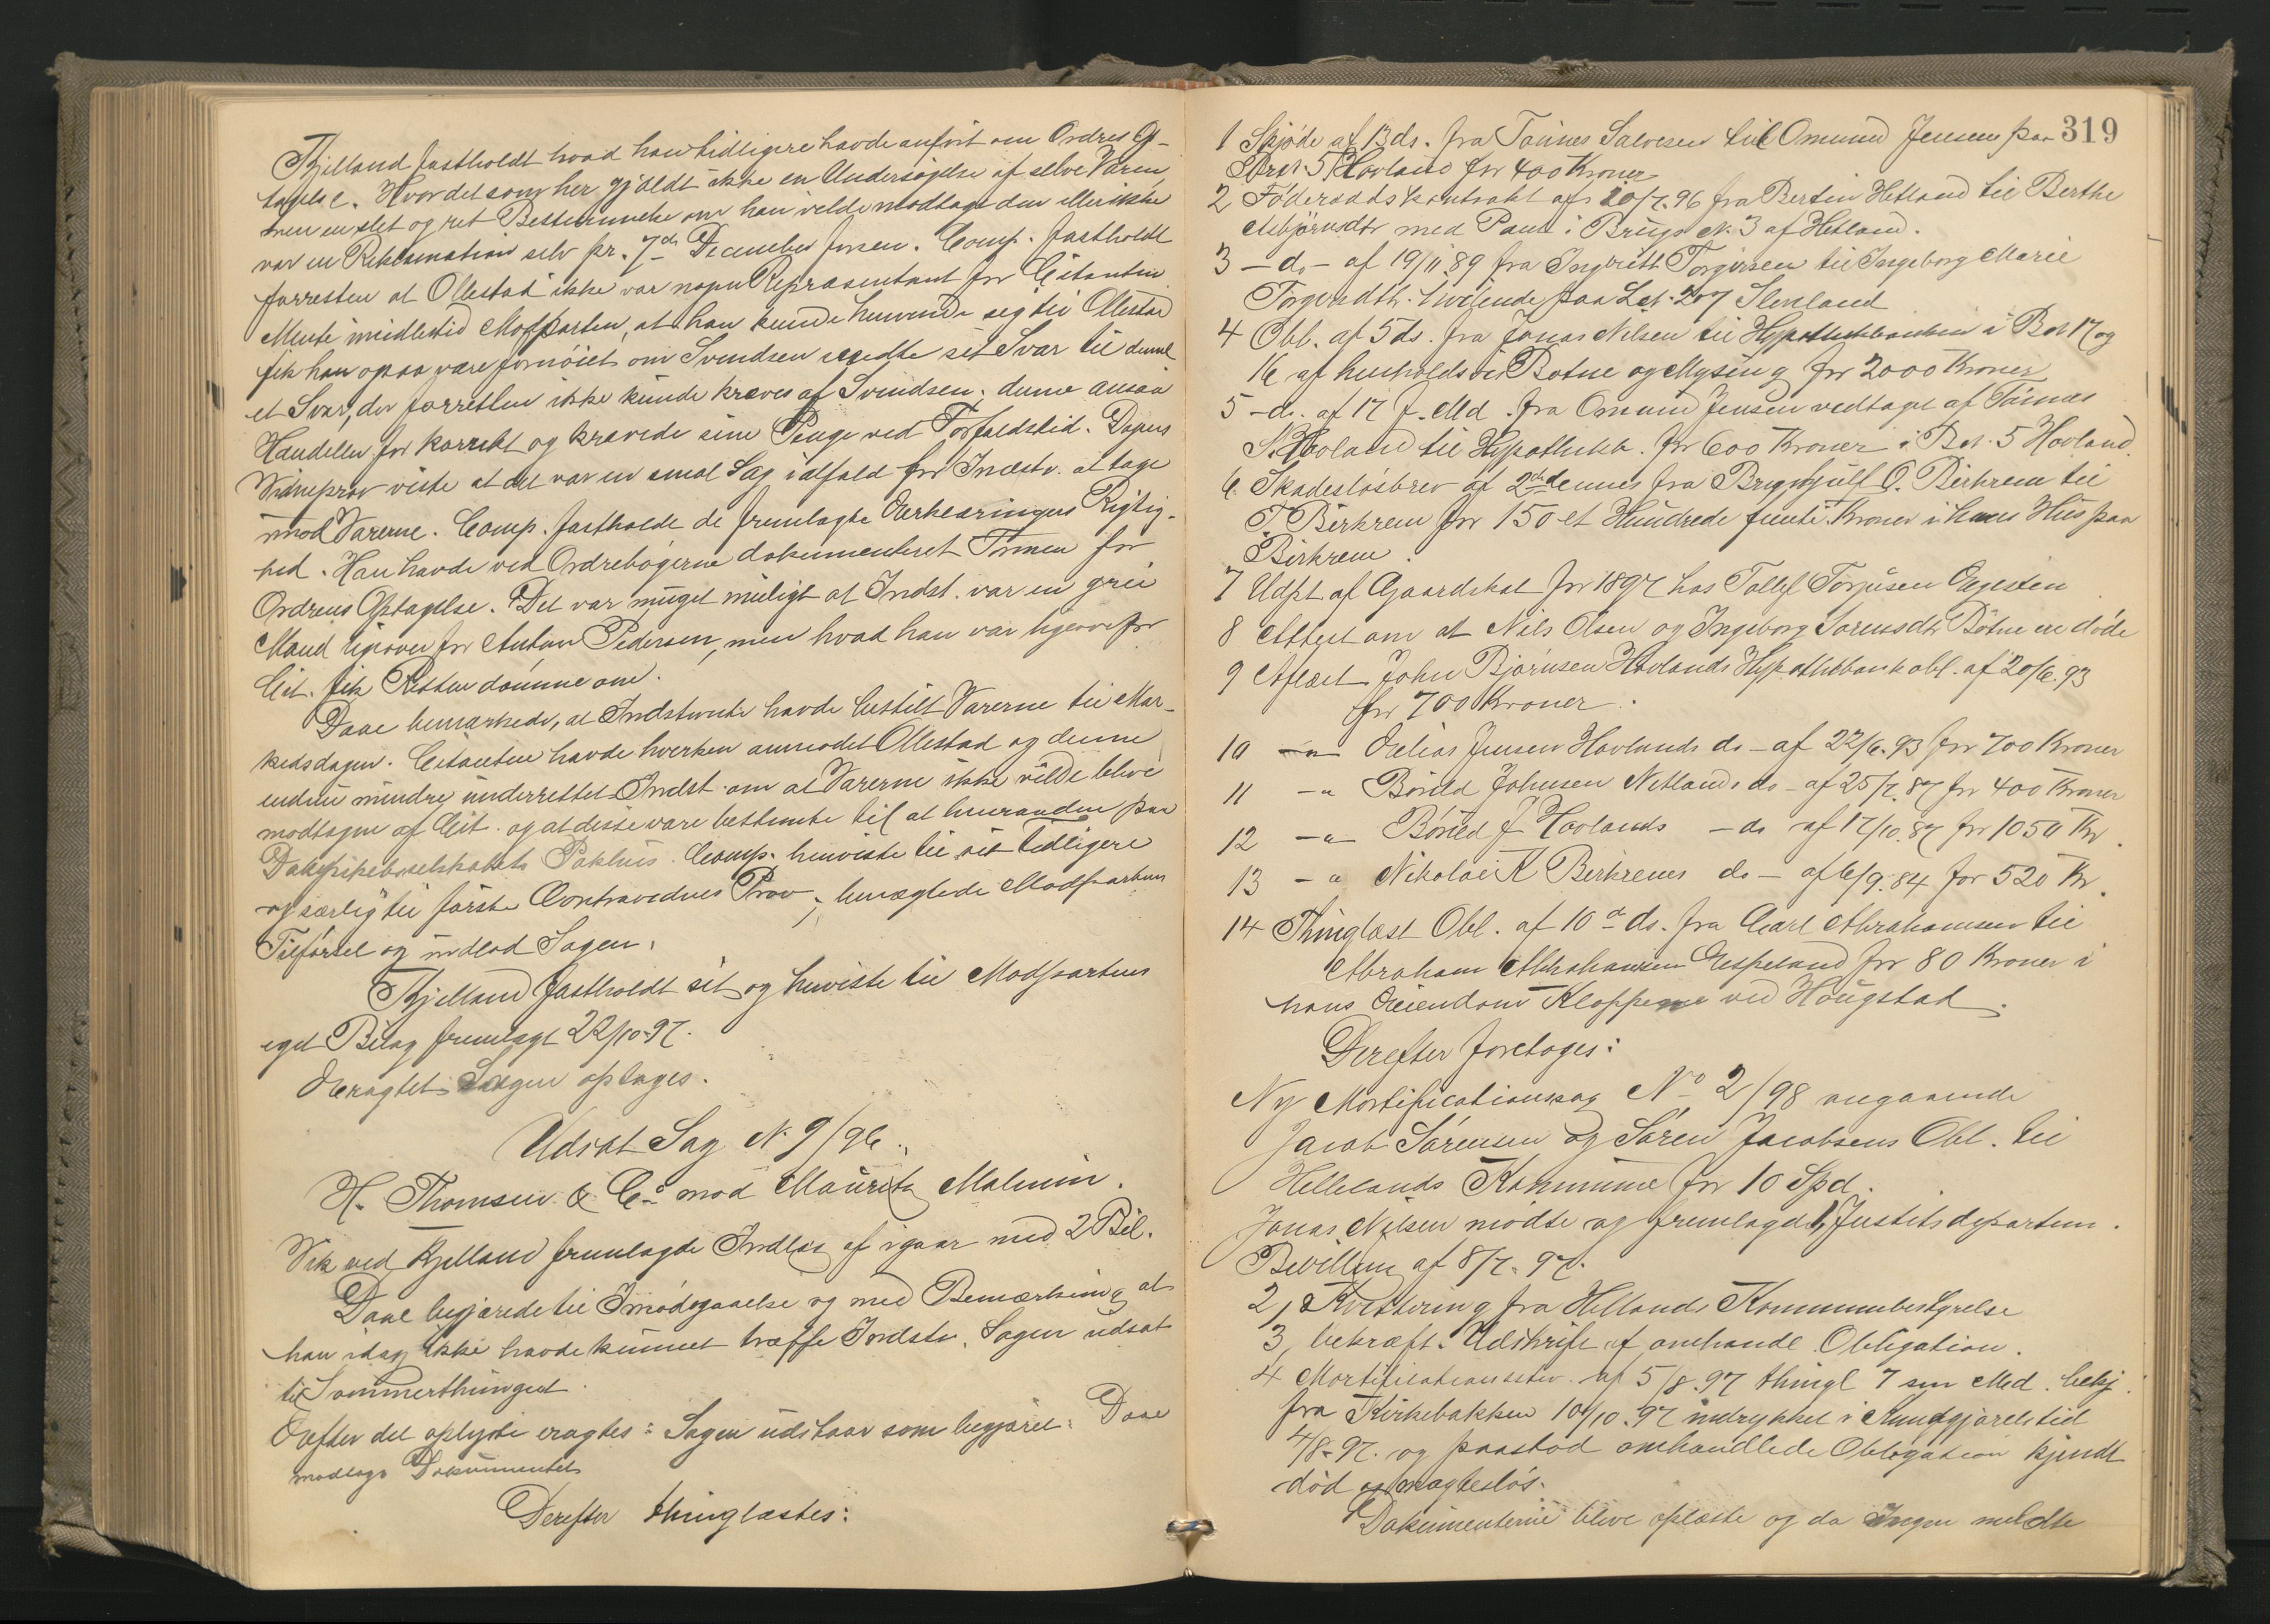 Kjelland fastholdt hvad han tidligere havde anført om Ordres Op-
tagelse. Hvor det som her gjaldt ikke en Undersøgelse af selve Varen
men en slet og ret Bestemmelse om han vilde modtage den eller ikke
var en Reklamation selv pr. 7de December for sen. Comp. fastholdt
forresten at Ollestad ikke var nogen Repræsentant for Citanten
Mente imidlertid Modparten, at han kunde henvende seg til Ollestad
fik han ogsaa være fornøiet om Svendsen sendte sit Svar til denne
et Svar, der forresten ikke kunde kræves af Svendsen, denne ansaa
Handelen for korrekt og krævede sine Penge ved Forfaldstid. Dagens
Vidneprov viste at det var en smal Sag idfald for Indstv. at tage
imod Varerne. Comp. fastholdt de fremlagte Erklæringers Rigtig-
hed. Han havde ved Ordrebøgerne dokumenteret Formen for
Ordrens Optagelse. Det var muget muligt at Indst. var en grei
Mand ligeover for Anton Pedersen, men hvad han var ligeovefor
Cit. fik Retten dømme om.
Daae bemærkede, at Indstevnte havde bestilt Varerne til Mar-
kedsdagen. Citanten havde hverken anmodet Ollestad og denne
endnu mindre underrettet Indst. om at Varerne ikke vilde blive
modtagne af Cit. og at disse vare bestemte til at
Dampskibsselskabets Pakhus. Comp. henviste til sit tidligere
og særlig til første Contravidnes Prov, benægtede Modpartens
Tilførsel og indlod Sagen.
Kjelland fastholdt sit og henviste til Modpartens
eget Bilag fremlagt 22/10-97.
Eragtet: Sagen optages.
Udsat Sag N. 9/96.
H. Thomsen & Co mod Mauritz Malmin.
Vik ved Kjelland fremlagde Indlæg af igaar med 2 Bil.
Daae begjærede til Imødegaaelse og med Bemærkning at
han idag ikke havde kunnet træffe Indstv. Sagen udsat
til Sommerthinget.
Efter det oplyste eragtes: Sagen udstaar som begjæret. Daae
modtog Dokumentets
Derefter thinglæstes:
319
1 Skjøde af 13 ds. fra Tønnes Salvesen til Omund Jensen paa
Brn. 5 Hovland for 400 Kroner
2 Føderaadskontrakt af 20/7. 96 fra Bertin Hetland til Berthe
Asbjørnsdtr med Pant i Brugs N. 3 af Hetland.
3 - do - af 19/11 89 fra Ingbritt Torgersen til Ingeborg Marie
Torgersdtr. hvilende paa L.nr. 207 Sleveland
4 Obl. af 5 ds. fra Jonas Nilsen til Hypothekbanken i Bnr 17 og
16 af henholdsvis Botne og Mysing for 2000 Kroner
5 - do. af 17 f. Md. fra Omund Jensen vedtaget af Tønnes
S. Hovland til Hypothekb. for 600 Kroner i Bnr. 5 Hovland.
6. Skadesløsbrev af 2de dennes fra Bryngjulf O. Birkrem til
T. Birkrem for 150 et Hundrede femti Kroner i hans Hus paa
Birkrem.
7 Udpt af Gaardskat for 1897 hos Tollef Torjusen Egesten
8 Attest om at Nils Olsen og Ingeborg Sørensdtr Botne ere døde
9 Aflæst John Bjørnsen Hovlands Hypothekbankobl. af 20/6. 93
for 700 Kroner.
10 -"- Elias Jensen Hovlands do - af 22/6. 93 for 700 Kroner
11 -"- Børild Johnsen Netlands do - af 25/7. 87 for 400 Kroner
12 -"- Børild J Hovlands - do af 17/10. 87 for 1050 Kr.
13 -"- Nikolai K Birkrems do - af 6/9. 84 for 520 Kr.
14 Thinglæst Obl. af 10de ds. fra Carl Abrahamsen til
Abraham Abrahamsen Espeland for 80 Kroner i
hans Eiendom Kloppene ved Haugstad.
Derefter foretages:
Ny Mortificationssag No 2/98 angaaende
Jacob Sørensen og Søren Jacobsens Obl. til
Hellelands Kommune for 10 Spd.
Jonas Nilsen mødte og fremlagde 1, Justitsdepartem.
Bevilling af 8/7. 97.
2, Kvittering fra Hellands Kommunebestyrelse
3, bekræft. Udskrift af omhandl. Obligation.
4 Mortificationsstev. af 5/8. 97 thingl 7 sm Md. bekj.
fra Kirkebakken 10/10. 97 indrykket i Kundgjørelstid
4/8-97. og paastod omhandlede Obligation kjendt
død og magtesløs.
Dokumenterne blive oplæste og da Ingen meldte